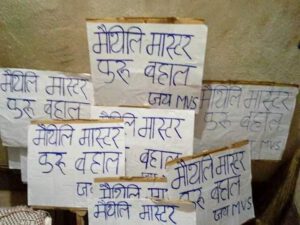 मैथिलि मास्टर
पुरु बहाल
जय MVS
मैथिलि मास्टर
पुरु बहाल
मैथिलि मास्टर
पुरु बहाल
जय MVS
मैथिलि मास्टर
पुरु बहाल
जय
बहाल
जय MVS
मैथिलि मास्टर
पुरु बहाल
जय MVS
मैथिलि मा
मैथिलि मास्टर